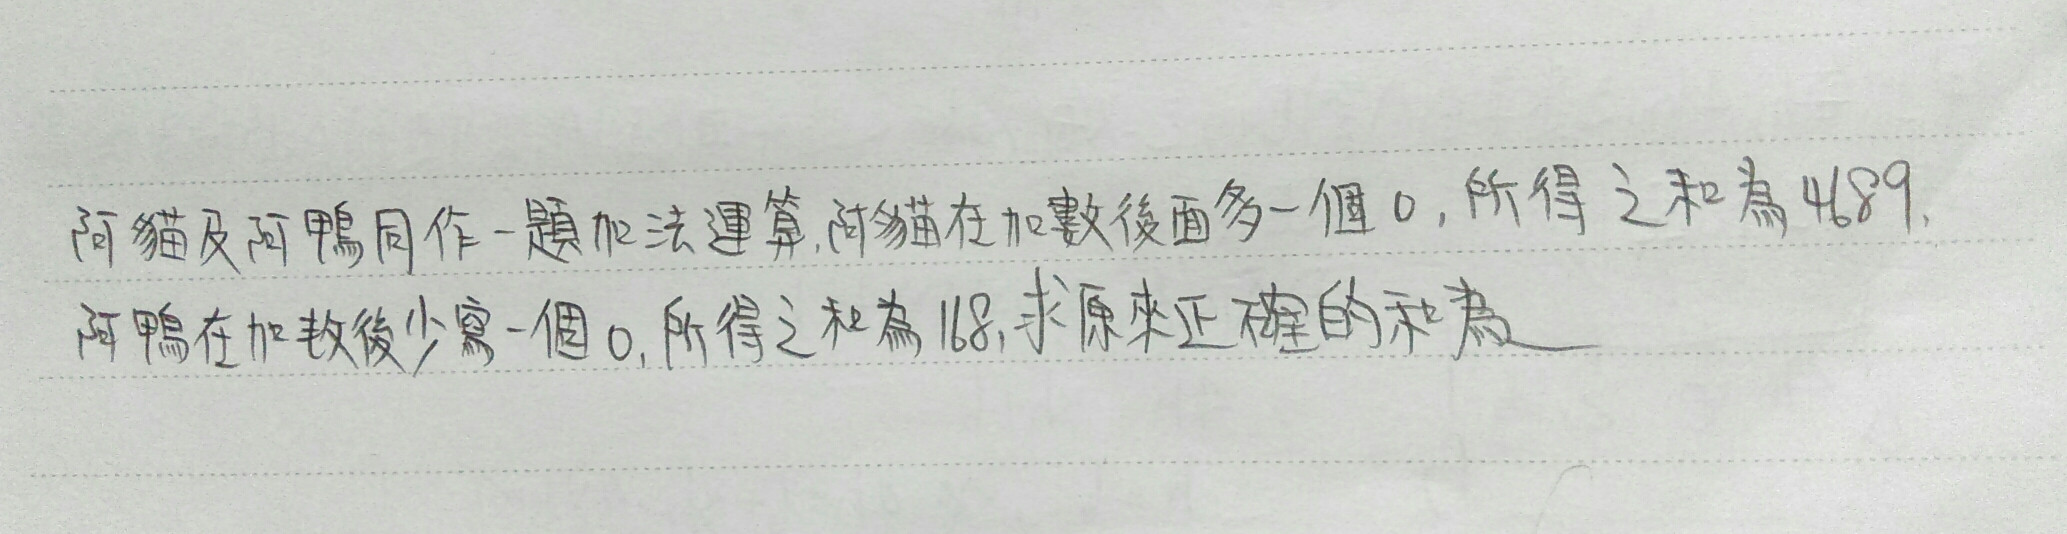 阿貓及阿鴨同作一題加法運算,阿貓在加數後面多一個0,所得之和為4689,
阿鴨在加數後少寫一個0,所得之和為168,求原來正確的和為__